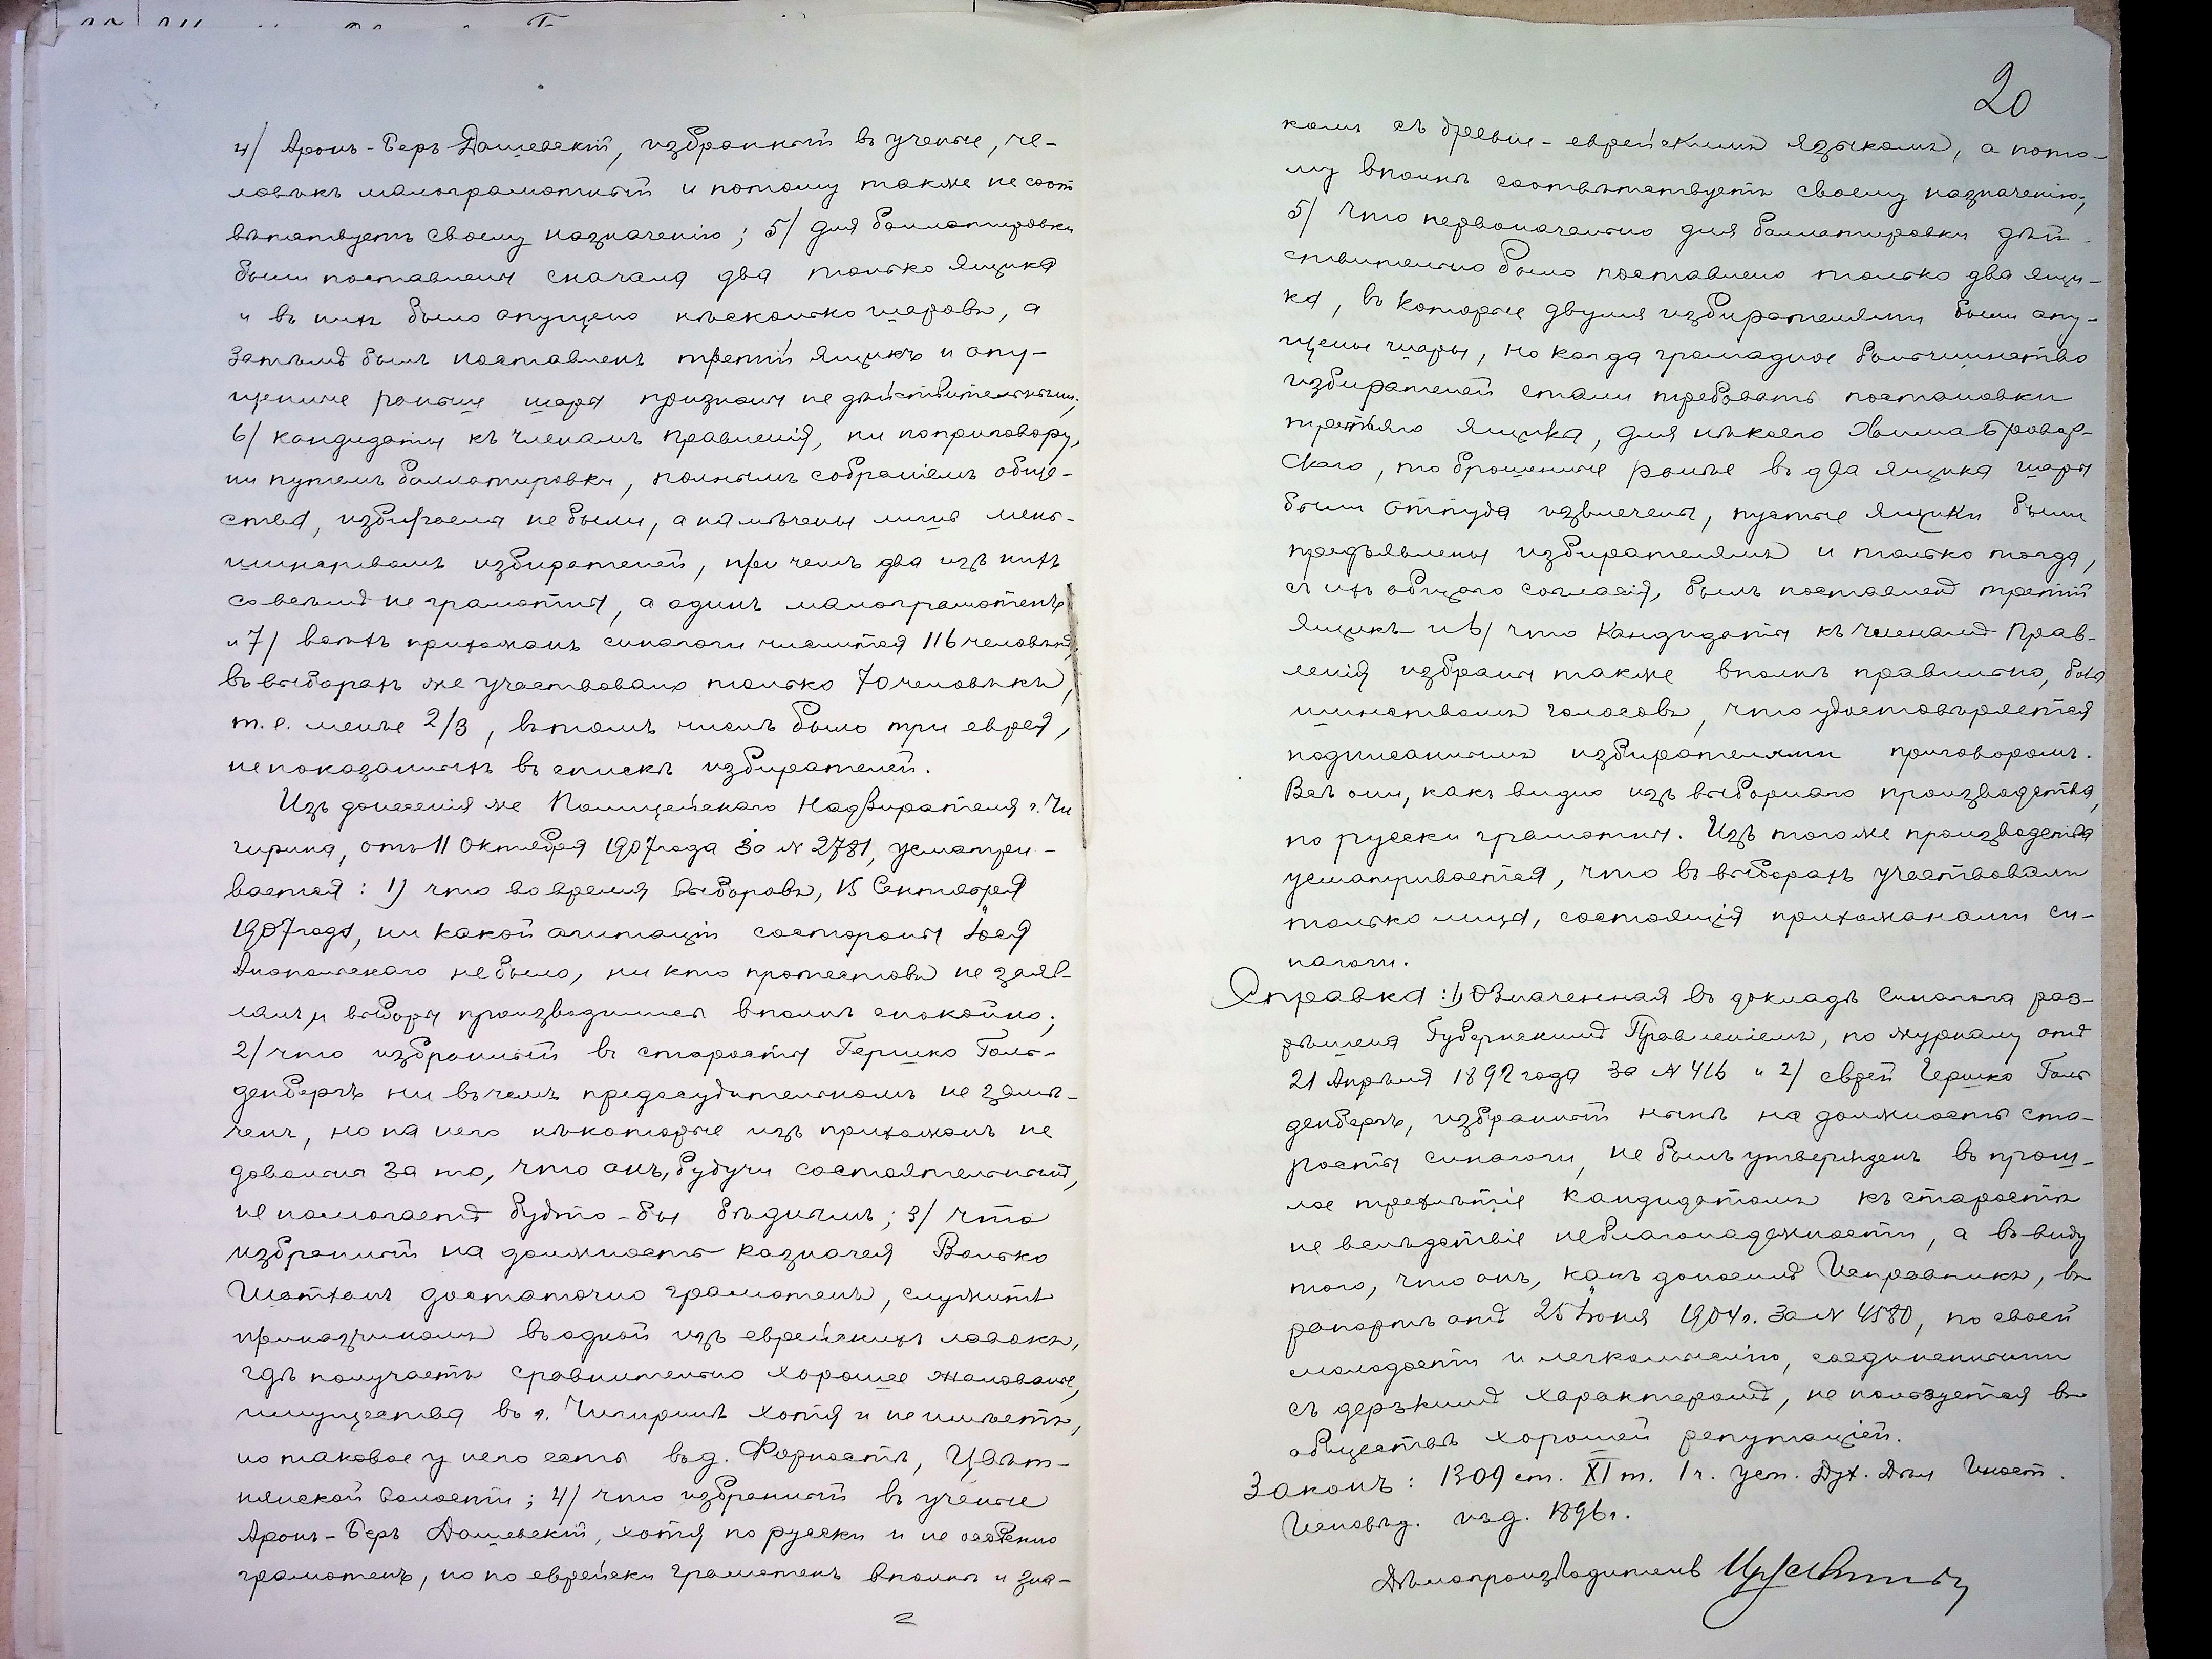 4/ Аронъ-Беръ Дашевскій, избранный въ ученые, че-
ловѣкъ малограмотный и потому также не соот
вѣтствуетъ своему назначенію; 5/ для баллотировки
были поставлены сначала два только ящика
и въ нихъ было опущено нѣсколько шаровъ, а
затѣмъ былъ поставленъ третій ящикъ и опу-
щенные раньше шары признаны не дѣйствительными;
6/ кандидаты къ членамъ правленія, ни по приговору,
ни путемъ баллотировки, полнымъ собраніемъ обще-
ства, избираемы не были, а намѣчены лишь мень-
шинствомъ избирателей, при чемъ два изъ нихъ
совсѣмъ не грамотны, а одинъ малограмотенъ
и 7/ всѣхъ прихожанъ синагоги числится 116 человѣкъ,
въ выборахъ же участвовало только 70 человѣкъ,
т.е. менѣе 2/3, въ томъ числѣ было три еврея,
не показанныхъ въ спискѣ избирателей.
Изъ донесенія же Полицейскаго Надзирателя г. Чи
гирина, отъ 11 Октября 1907 года за № 2781, усматри-
вается: 1) что во время выборовъ, 15 Сентября
1907 года, ни какой агитаціи со стороны Іося
Анопольскаго не было, ни кто протестовъ не заяв-
лялъ и выборы производились вполнѣ спокойно;
2/ что избранный въ старосты Гершко Голь-
денбергъ ни въ чемъ предосудительномъ не замѣ-
ченъ, но на него нѣкоторые изъ прихожанъ не
довольны за то, что онъ, будучи состоятельный,
не помогаетъ будто-бы бѣднымъ; 3/ что
избранный на должность казначея Волько
Шотханъ достаточно грамотенъ, служитъ
приказчикомъ въ одной изъ еврейскихъ лавокъ,
гдѣ получаетъ сравнительно хорошее жалованье,
имущества въ г. Чигиринѣ хотя и не имѣетъ,
но таковое у него есть въ д. Форностѣ, Цвѣт-
нянской волости; 4/ что избранный въ ученые
Аронъ-Беръ Дашевскій, хотя по русски и не особенно
грамотенъ, но по еврейски грамотенъ вполнѣ и зна-
20
комъ съ древне-еврейскимъ языкомъ, а пото-
му вполнѣ соотвѣтствуетъ своему назначенію;
5/ что первоначально для баллотировки дѣй-
ствительно было поставлено только два ящи-
ка, въ которые двумя избирателями были опу-
щены шары, но когда громадное большинство
избирателей стали требовать постановки
третьяго ящика, для нѣкоего Хаима Бровар-
скаго, то брошенные ранѣе въ два ящика шары
были оттуда извлечены, пустые ящики были
предъявлены избирателямъ и только тогда,
съ ихъ общаго согласія, былъ поставленъ третій
ящикъ и 6/ что кандидаты къ членамъ Прав-
ленія избраны также вполнѣ правильно, боль
шинствомъ голосовъ, что удостовѣряется
подписаннымъ избирателями приговоромъ.
Всѣ они, какъ видно изъ выборнаго производства,
по русски грамотны. Изъ того же производства
усматривается, что въ выборахъ участвовали
только лица, состоящія прихожанами си-
нагоги.
Справка: 1) Означенная въ докладѣ Синагога раз-
рѣшена Губернскимъ Правленіемъ, по журналу отъ
21 Апрѣля 1892 года за № 416 и 2/ еврей Гершко Голь
денбергъ, избранный нынѣ на должность ста-
росты синагоги, не былъ утвержденъ въ прош-
лое трехлѣтіе кандидатомъ къ старостѣ
не вслѣдствіе неблагонадежности, а въ виду
того, что онъ, какъ донесъ Исправникъ, въ
рапортѣ отъ 25 Іюня 1904 г. за № 4580, по своей
молодости и легкомыслію, соединенными
съ дерзкимъ характеромъ, не пользуется въ
обществѣ хорошей репутаціей.
Законъ: 1309 ст. XI т. 1 ч. Уст. Дух. Дѣл Иност.
Исповѣд. изд. 1896 г.
Дѣлопроизводитель